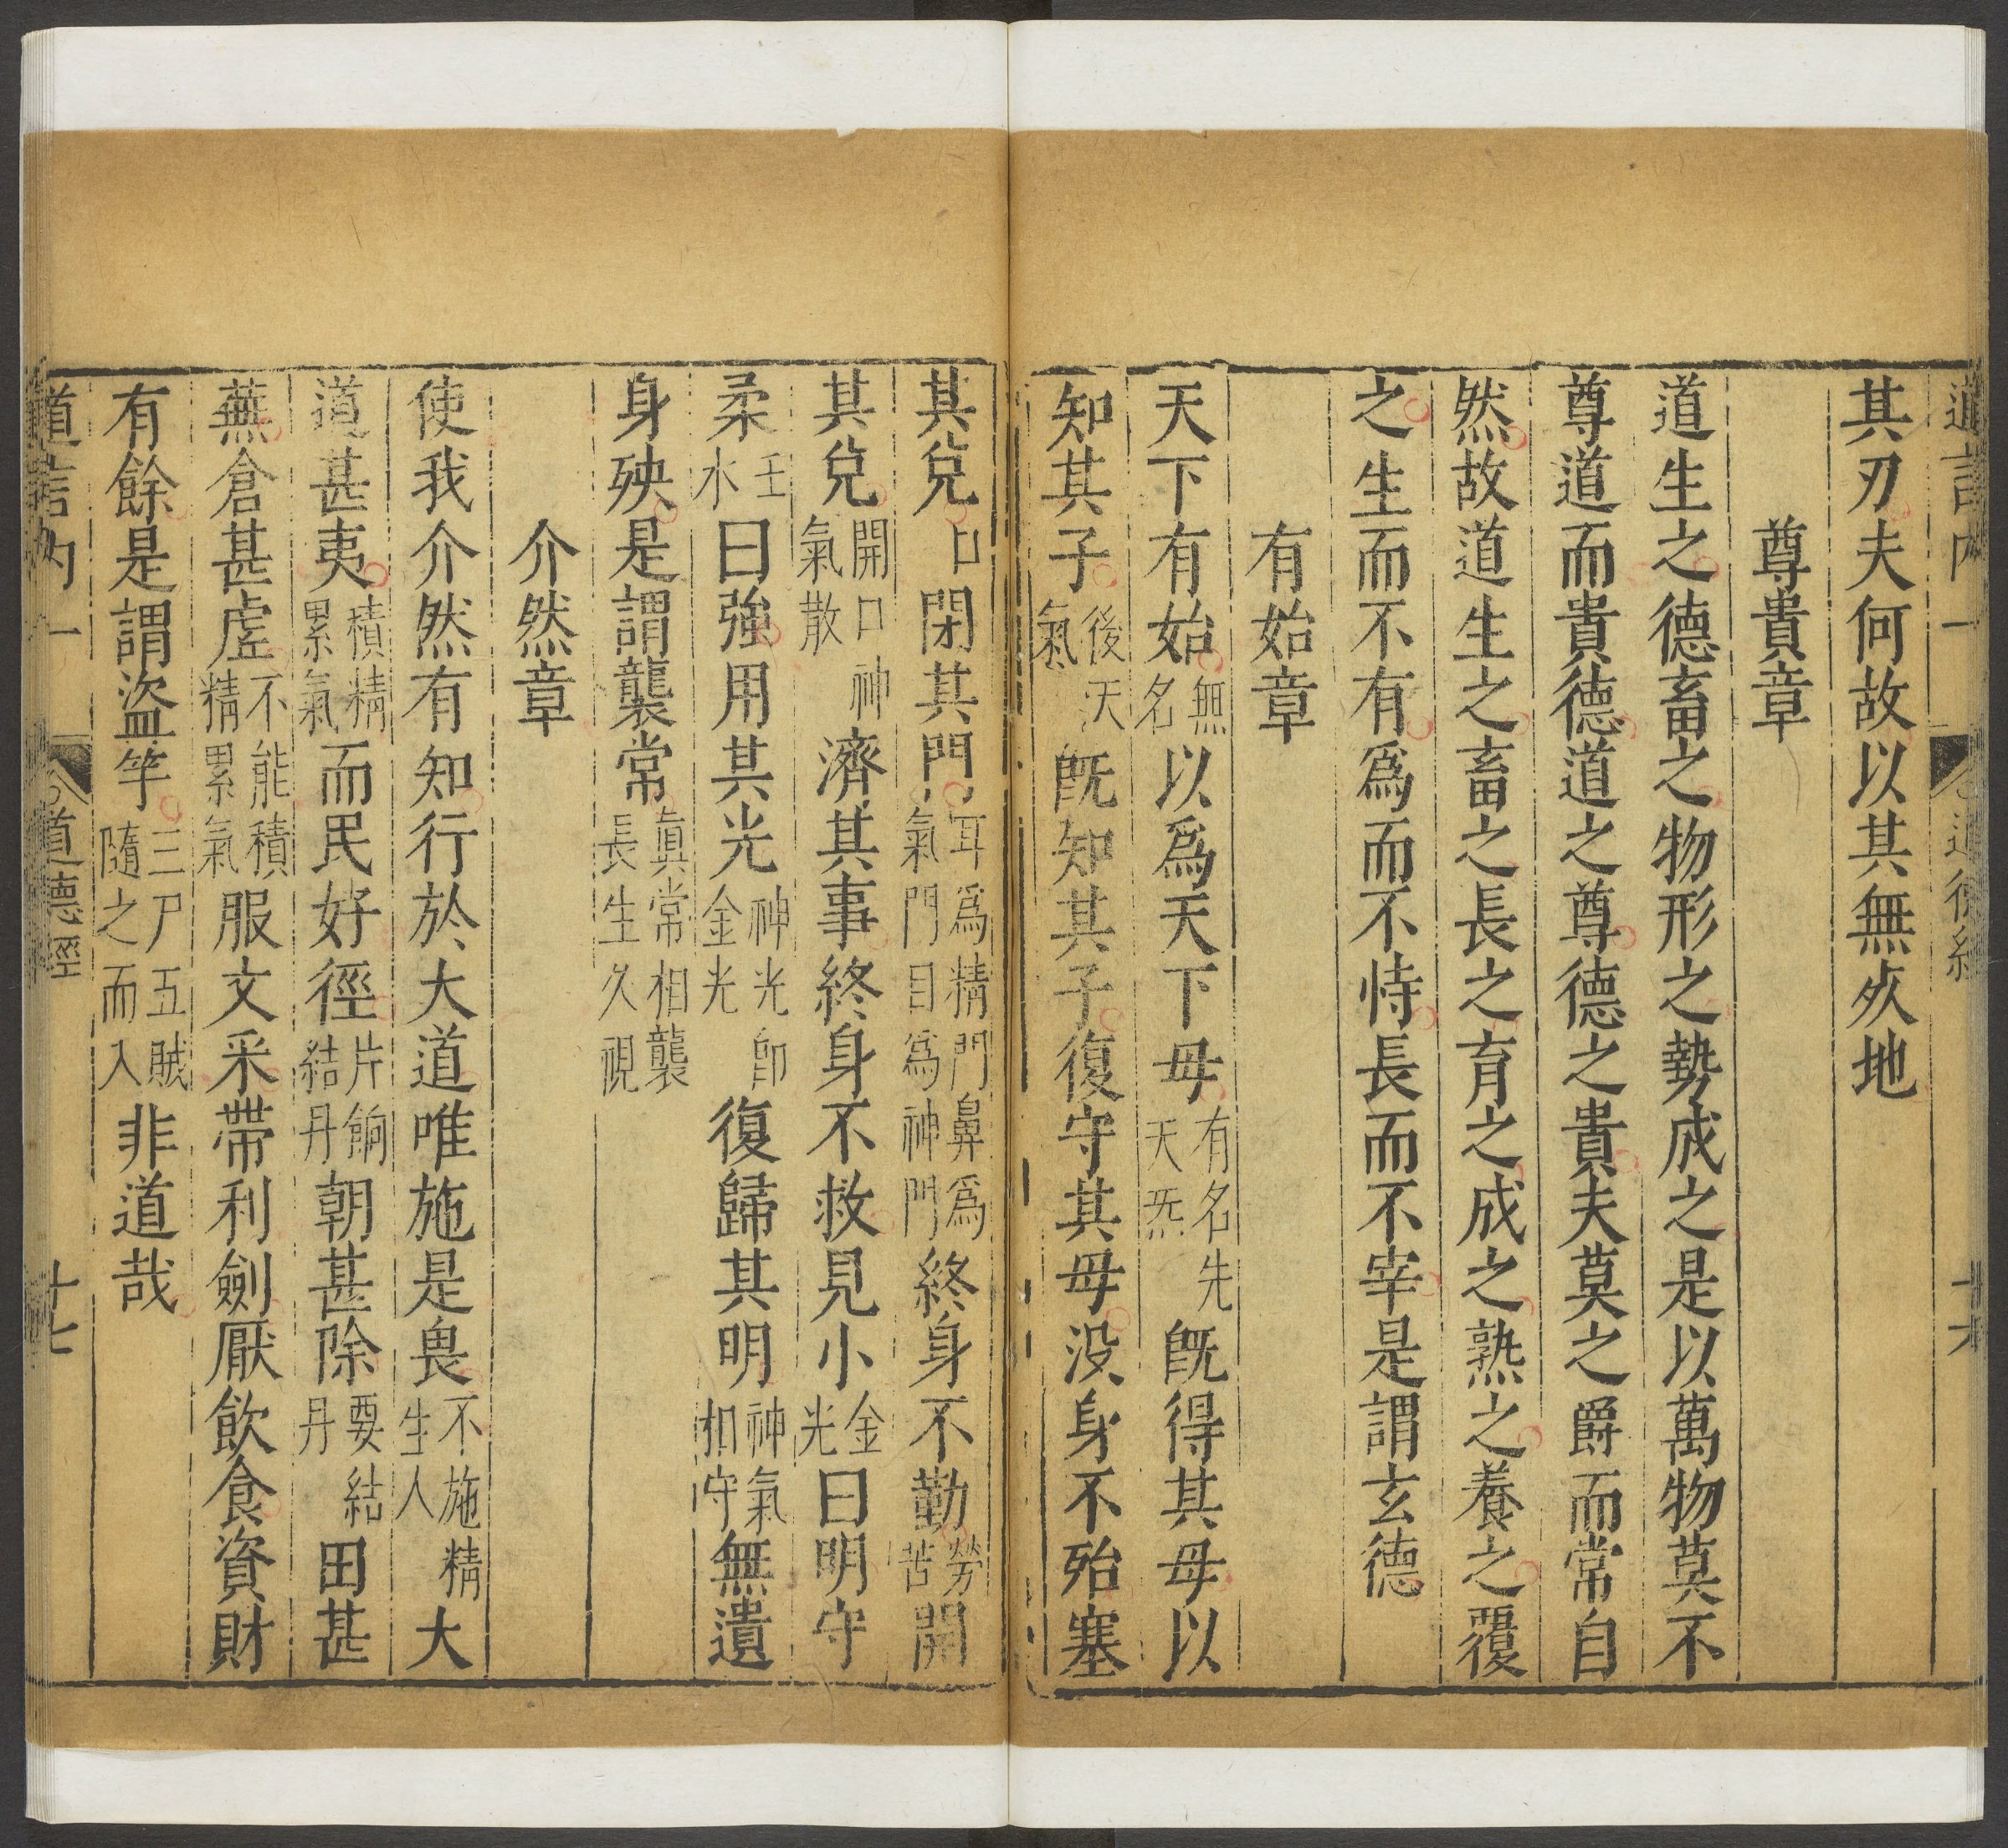 道言內一 道德經 十六
其刃夫何故以其無死地
尊貴章
道生之德畜之物形之勢成之是以萬物莫不
尊道而貴德道之尊德之貴夫莫之爵而常自
然故道生之畜之長之育之成之熟之養之覆
之生而不有爲而不恃長而不宰是謂玄德
有始章
天下有始無名以爲天下母有名先天炁旣得其母以
知其子後天氣旣知其子復守其母没身不殆塞
其兌口閉其門耳爲精門鼻爲氣門目爲神門終身不勤勞苦開
其兌開口神氣散濟其事終身不救見小金光曰明守
柔壬水曰強用其光神光卽金光復歸其明神氣相守無遺
身殃是謂襲常眞常相襲長生久視
介然章
使我介然有知行於大道唯施是畏不施精生人大
道甚夷積精累氣而民好徑片餉結丹朝甚除要結丹田甚
蕪倉甚虛不能積精累氣服文采帶利劍厭飲食資財
有餘是謂盜竽三尸五賊隨之而入非道哉
道言內一 道德經 十七